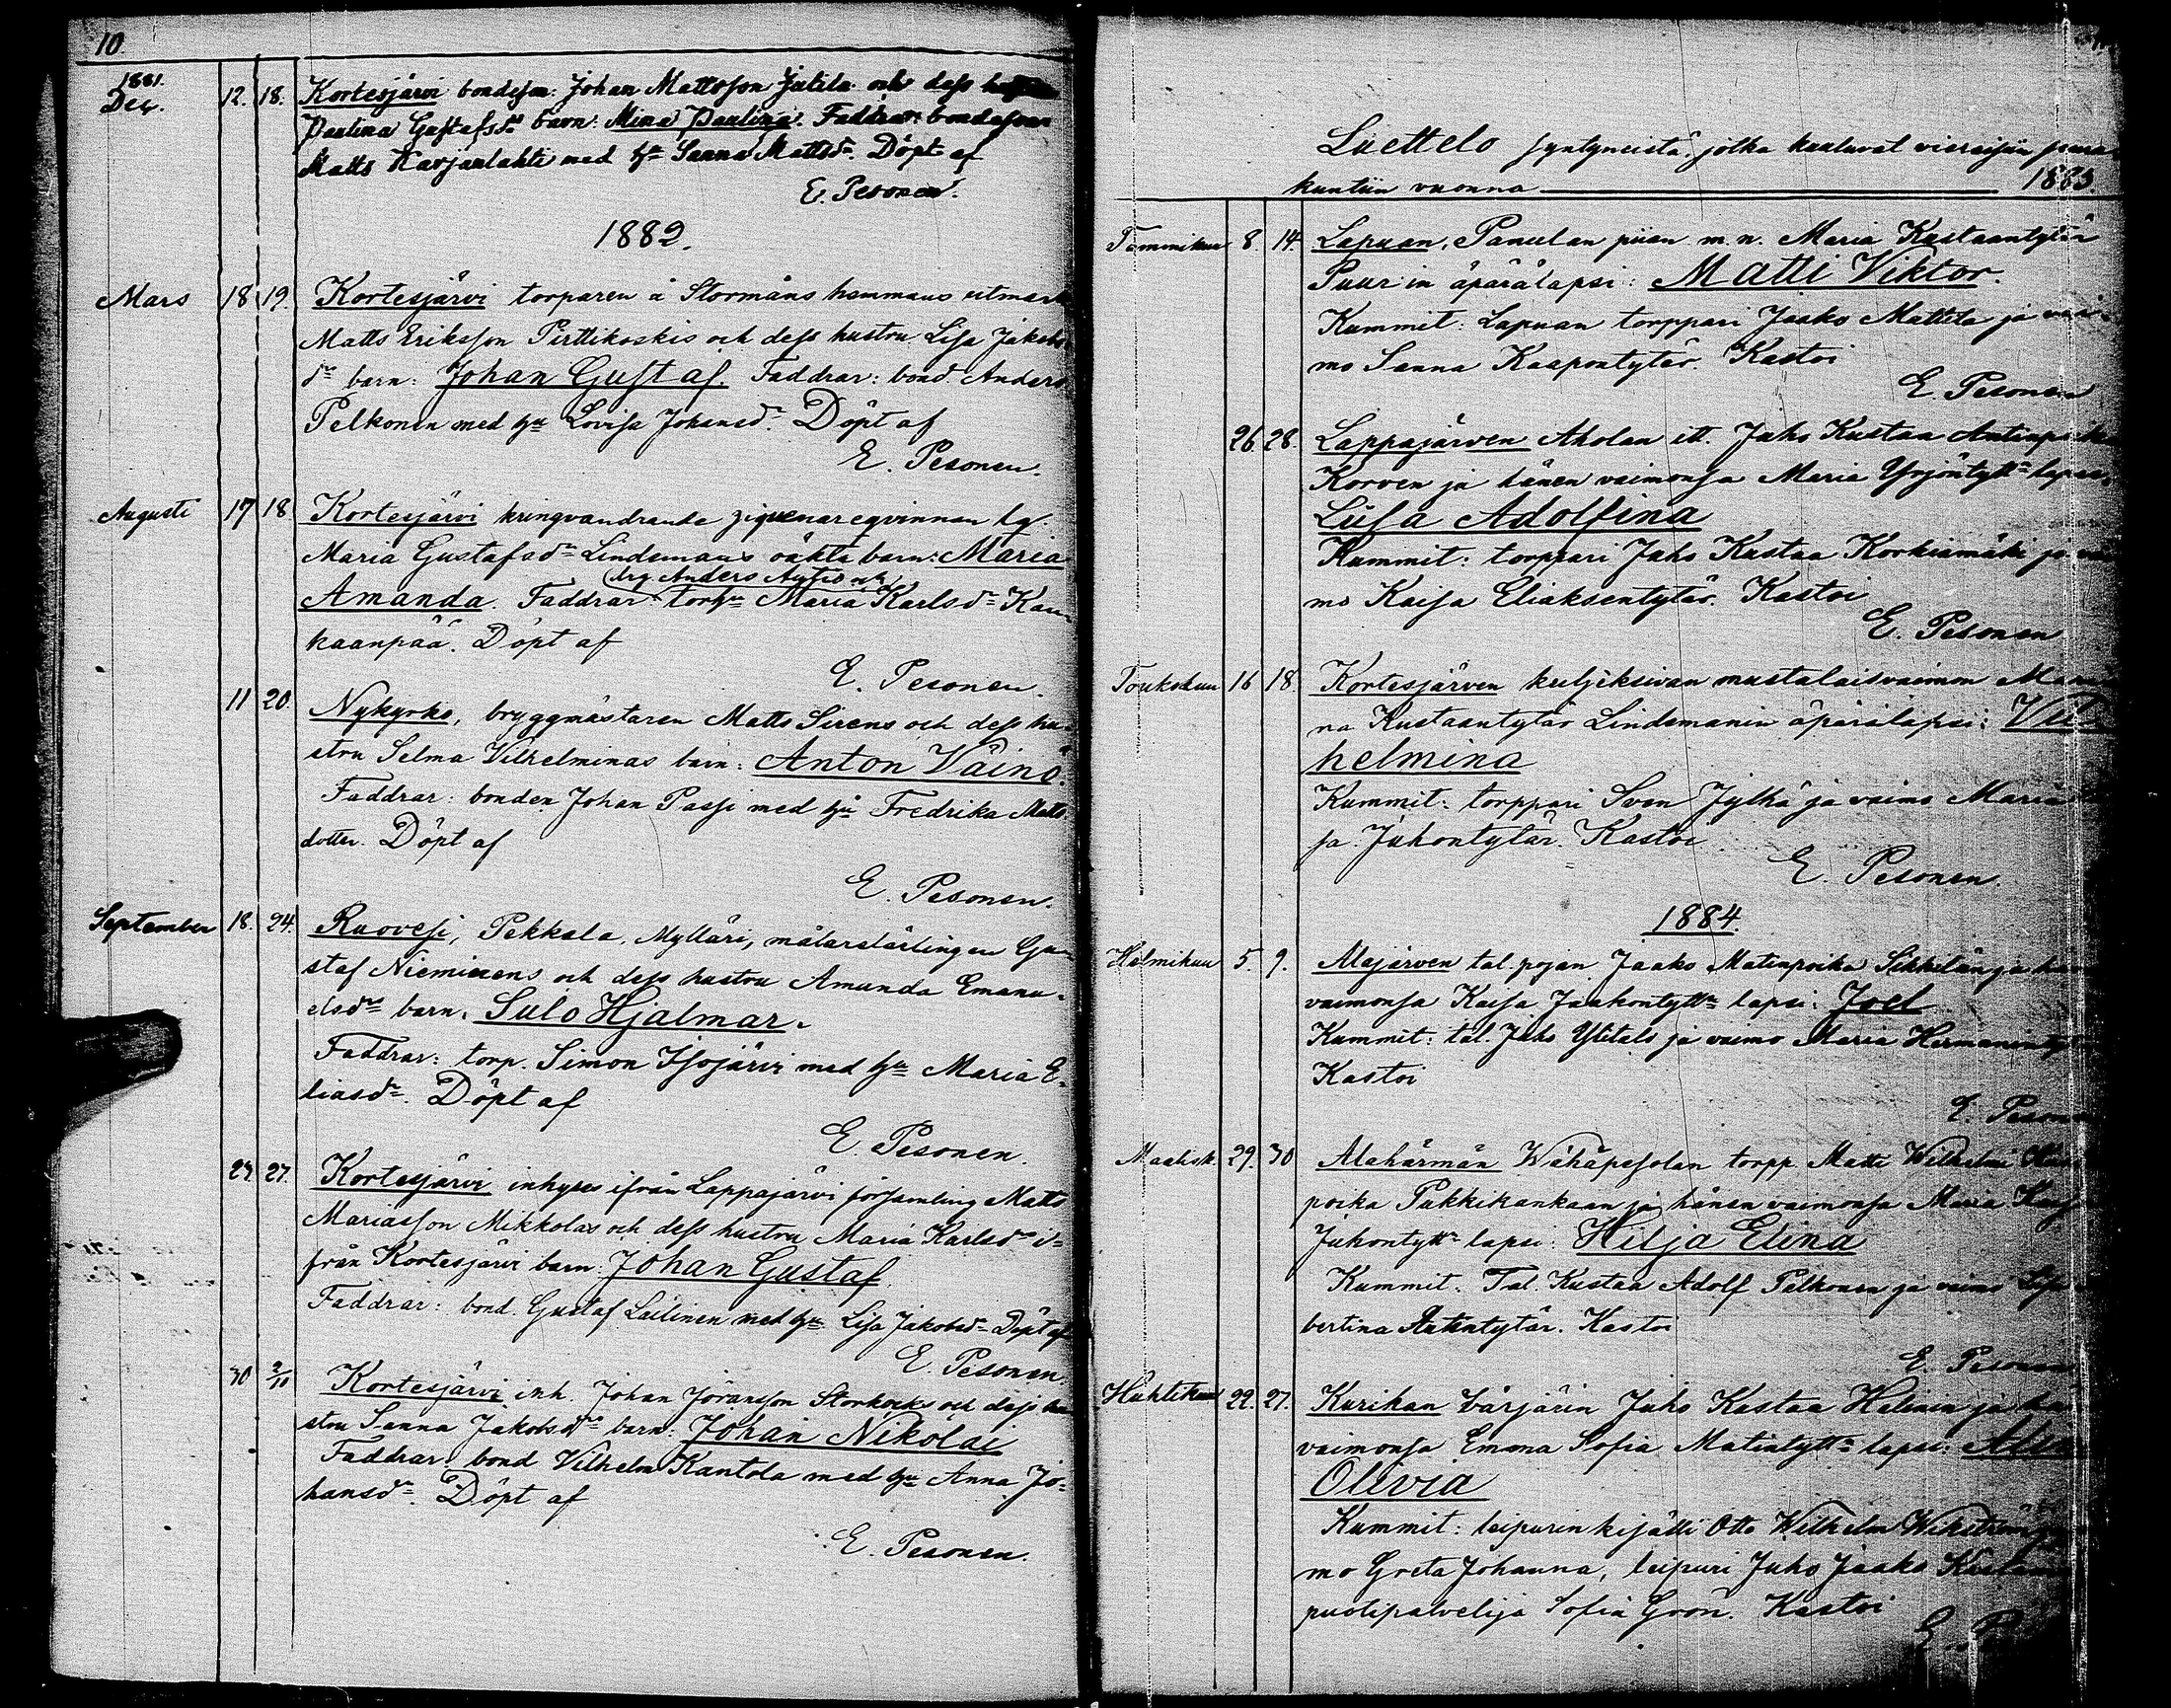 10
1881.
Dec. 12. 18. Kortesjärvi bondeson: Johan Mattsson Jutila och dess
Paulina Gustafsdr barn: Mina Paulina. Faddrar: bondeson
Matts Karjanlahti med hu Sanna Mattsdr. Döpt af
E. Pesonen.
1882.
Mars 18 19. Kortesjärvi torparen å Stormåns hemmans utmark
Matts Eriksson Pirttikoskis och dess hustru Lisa Jakobs
dr barn: Johan Gustaf. Faddrar: bond. Anders
Pelkonen med hu Lovisa Johansdr. Döpt af
E. Pesonen.
Augusti 17 18 Kortesjärvi kringvandrande zigenareqvinnan lg.
Maria Gustafsdr Lindemans oäkta barn: Maria
drg. Anders och
Amanda. Faddrar: torhu Maria Karlsdr Kau
kaanpää. Döpt af
E. Pesonen.
11 20. Nykyrko, bryggmästaren Matts Sirens och dess hu
stru Selma Vilhelminas barn: Anton Väinö.
Faddrar: bonden Johan Passi med hu Fredrika Matts
dotter. Döpt af
E. Pesonen.
September 18. 24. Ruovesi, Pekkala, Mylläri, målarelärlingen Gu
staf Nieminens och dess hustru Amanda Emanu-
elsdr barn. Sulo Hjalmar.
Faddrar: torp. Simon Isojärvi med hu Maria E-
liasdr. Döpt af
E. Pesonen.
27. Kortesjärvi inhyses ifrån Lappajärvi församling Matts
Mariasson Mikkolas och dess hustru Maria Karlsdr i=
från Kortesjärvi barn: Johan Gustaf.
Faddrar: bond. Gustaf Lailinen med hu Lisa Jakobsdr Döpt af
E. Pesonen.
30 2/11 Kortesjärvi inh. Johan Jöransson Storkocks och dess hu
stru Sanna Jakobsdrs barn: Johan Nikolai
Faddrar: bond Vilhelm Kantola med hu Anna Jo-
hansdr. Döpt af
E. Pesonen.
Luettelo syntyneistä, jotka kuuluvat vieraisiin seura
kuntiin vuonna 1883.
Tammikuu 8. 14. Lapuan, Panulan piian m.n. Maria Kustaantytär
Puur'in äpärälapsi: Matti Viktor.
Kummit: Lapuan torppari Jaako Mattila ja vai
mo Sanna Kaapontytär. Kastoi
E. Pesonen
26. 28. Lappajärven Aholan itl. Juho Kustaa Antinp.
Korven ja hänen vaimonsa Maria Yrjöntyttn lapsi
Liisa Adolfina
Kummit: torppari Juho Kustaa Korkiamäki ja vai
mo Kaisa Eliaksentytär. Kastoi
E. Pesonen
Toukokuu 16 18 Kortesjärven kuljeksivan mustalaisvaimon Maria
na Kustaantytär Lindemanin äpärälapsi: Vil
helmina
Kummit: torppari Sven Jylhä ja vaimo Maria
sa Juhontytär. Kastoi
E. Pesonen.
1884.
Helmikuu 5. 9. Alajärven tal. pojan Jaako Matinpoika Sikkilän ja
vaimonsa Kaisa Jaakontyttn lapsi: Joel
Kummit: tal. Juho Ylitalo ja vaimo Maria Hermanintyt
Kastoi
E. Pesonen
Maalisk. 29. 30 Alahärmän Wähäpesolan torpp. Matti Wilhelmi
poika Pukkikankaan ja hänen vaimonsa Maria
Juhontyttn lapsi: Hilja Elina
Kummit. Tal. Kustaa Adolf Pelkonen ja vaimo
bertina Antintytär. Kastoi
E. Pesonen
Huhtikuu 22. 27. Kurikan värjärin Juho Kustaa Helinin ja
vaimonsa Emma Sofia Matintyttn lapsi:
Olivia
Kummit: leipurin kisälli Otto Wilhelm Wikström
mo Greta Johanna, leipuri Juho Jaako
puotipalvelija Sofia Grön. Kastoi